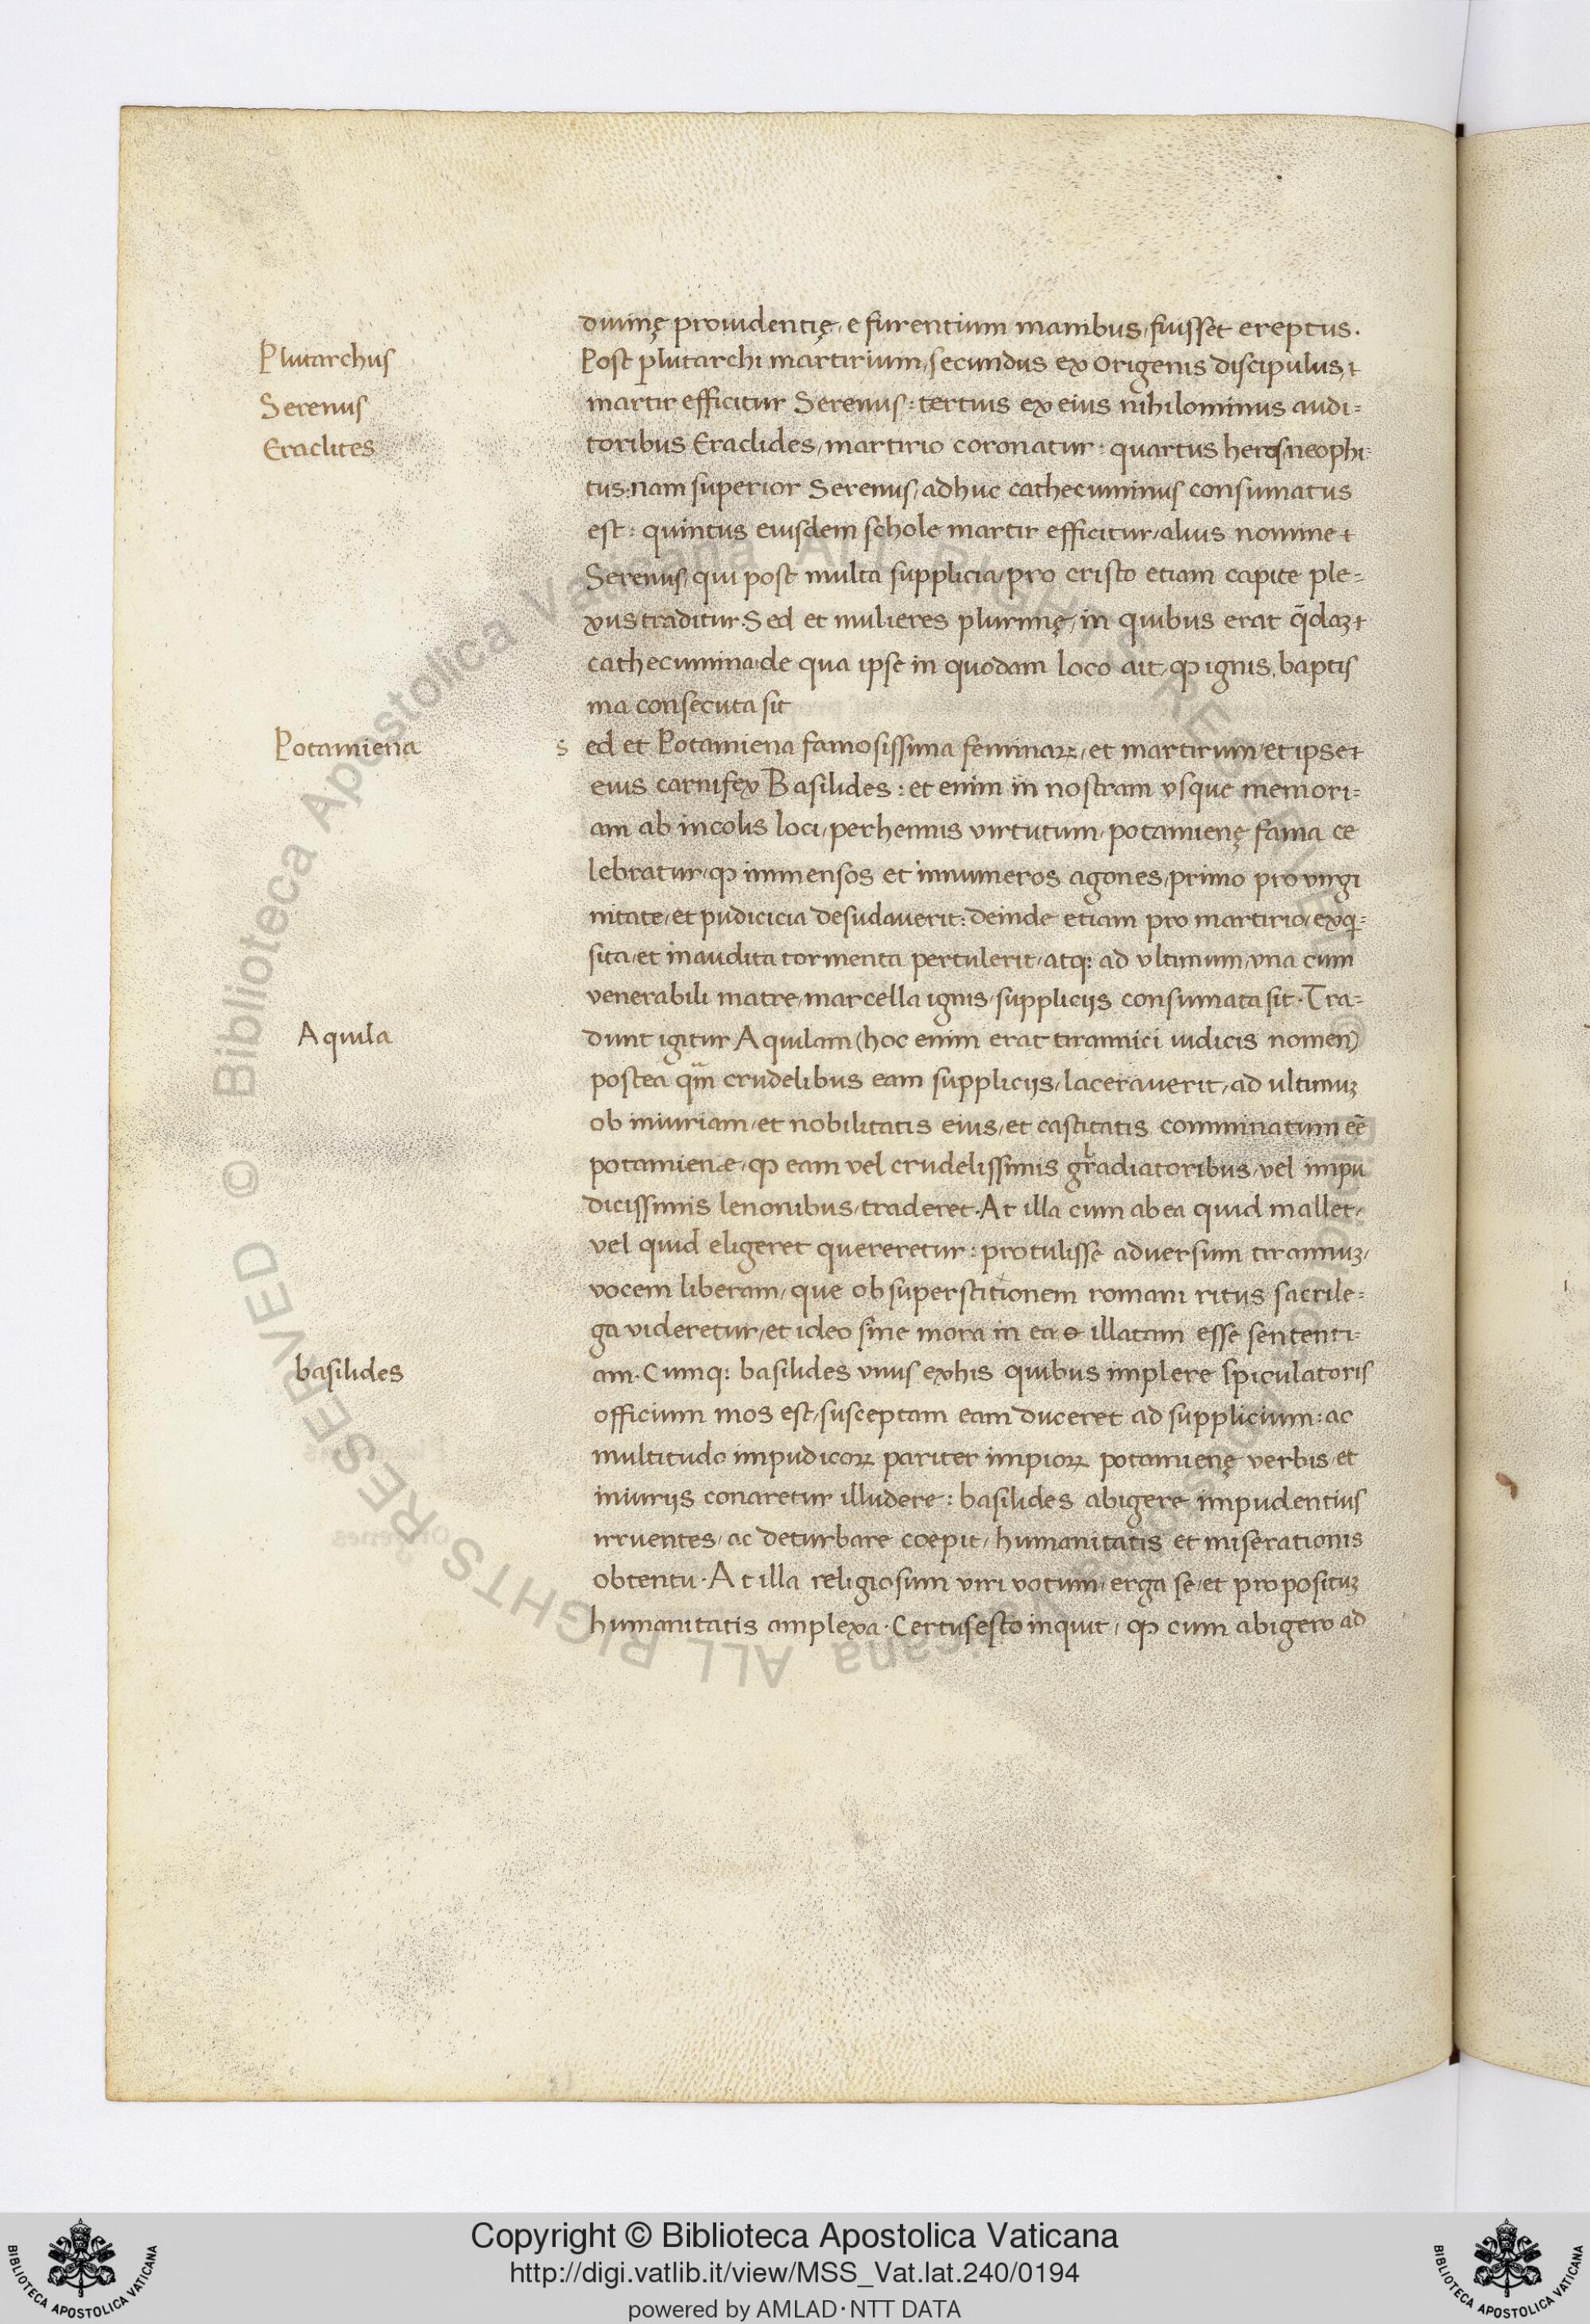 diuinę prouidentię, e furentium manibus, fuisset ereptus.
Plutarchus
Post plutarchi martirium, secundus ex origenis discipulus,
Serenus
martir efficitur Serenus: tertius ex eius nihilominus audi=
Eraclites
toribus Eraclides, martirio coronatur: quartus heros, neophi=
tus: nam superior Serenus, adhuc cathecuminus consumatus
est: quintus eiusdem schole martir efficitur, alius nomine
Serenus, qui post multa supplicia, pro cristo etiam capite ple=
xus traditur. Sed et mulieres plurimę, in quibus erat q̄daꝫ
cathecumina: de qua ipse in quodam loco ait, ꝙ ignis, baptis
ma consecuta sit
Potamiena
s ed et Potamiena famosissima feminaꝝ, et martirum, et ipse
eius carnifex Basilides: et enim in nostram vsque memori=
am ab incolis loci, perhennis virtutum, potamienę fama ce
lebratur, ꝙ immensos et innumeros agones, primo pro virgi
nitate, et pudicicia desudauerit: deinde etiam pro martirio, exq=
sita, et inaudita tormenta pertulerit, atq: ad vltimum, vna cum
venerabili matre, marcella ignis, suppliciis consumata sit. Tra=
Aquila
dunt igitur Aquilam (hoc enim erat tirannici iudicis nomen)
postea qm̄ crudelibus eam suppliciis, lacerauerit, ad ultimuꝫ
ob iniuriam, et nobilitatis eius, et castitatis comminatum eē
potamienæ, ꝙ eam vel crudelissimis gladiatoribus, vel impu
dicissimis lenonibus, traderet. At illa cum ab ea quid mallet,
vel quid eligeret quereretur: protulisse aduersum tirannuꝫ,
vocem liberam, que ob superstitionem romani ritus sacrile=
ga videretur, et ideo sine mora in ea illatam esse sententi=
basilides
am. Cumq: basilides vnus ex his quibus implere spiculatoris
officium mos est, susceptam eam duceret ad supplicium: ac
multitudo impudicoꝝ pariter impioꝝ potamienę verbis, et
iniuriis conaretur illudere: basilides abigere impudentius
irruentes, ac deturbare coepit, humanitatis et miserationis
obtentu. At illa religiosum viri votum, erga se, et propositüꝫ
humanitatis amplexa. Certus esto inquit, ꝙ cum abigero ad
Copyright © Biblioteca Apostolica Vaticana
http://digi.vatlib.it/view/MSS_Vat.lat.240/0194
powered by AMLAD·NTT DATA
BIBLIOTECA APOSTOLICA VATICANA
BIBLIOTECA APOSTOLICA VATICANA